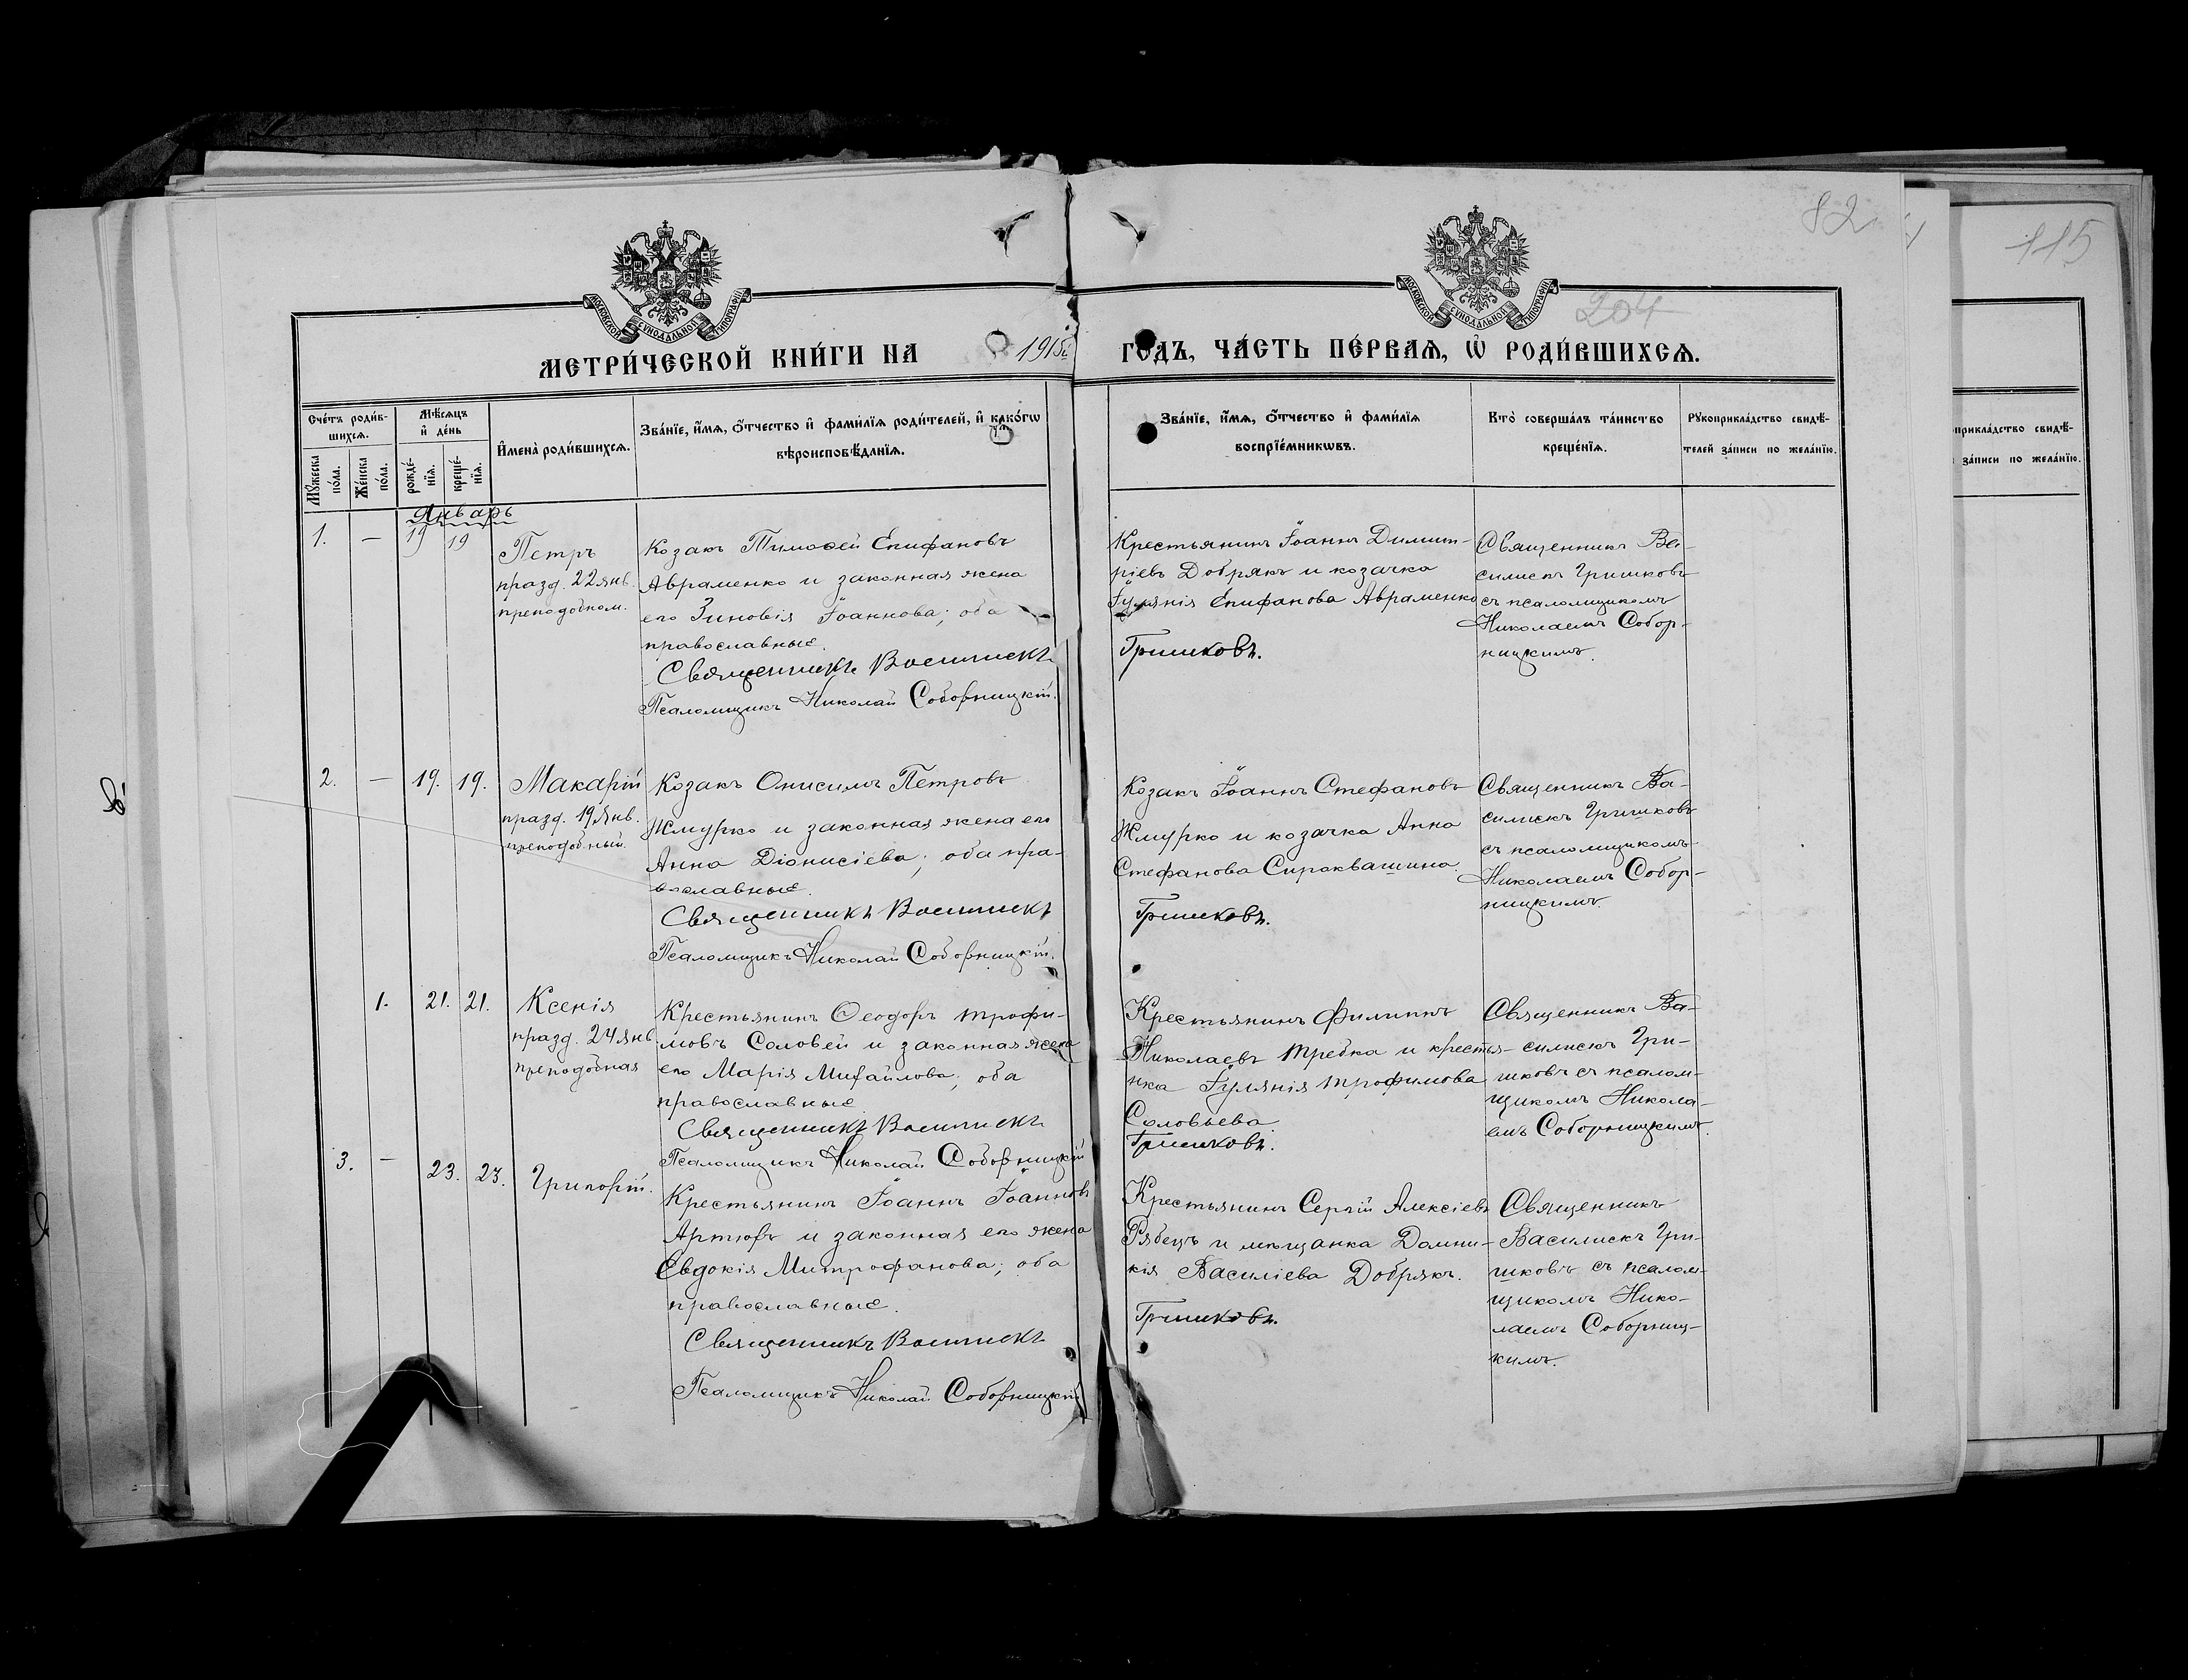 82
115
204
МОСКОВСКОЙ СѴНОДАЛЬНОЙ ТИПОГРАФІИ
МОСКОВСКОЙ СѴНОДАЛЬНОЙ ТИПОГРАФІИ
МЕТРИ́ЧЕСКОЙ КНИ́ГИ НА 1915й ГО́ДЪ, ЧА́СТЬ ПЕ́РВАѦ, Ѡ҆ РОДИ́ВШИХСѦ.
Сче́тъ роди́в-
шихсѧ.
Мѣ́сѧцъ
и҆ де́нь
И҆мена̀ роди́вшихсѧ.
Зва́нїе, и҆́мѧ, ѻ҆́тчество и҆ фами́лїѧ роди́телей, и҆ како́гѡ
вѣроисповѣ́данїѧ.
Мꙋ́жеска
по́ла.
Же́нска
по́ла.
рожде́-
нїѧ.
креще́-
нїѧ.
Зва́нїе, и҆́мѧ, ѻ҆́тчество и҆ фами́лїѧ
воспрїе́мникѡвъ.
Кто̀ соверша́лъ та́инство
креще́нїѧ.
Рꙋкоприкла́дство свидѣ́-
телей за́писи по жела́нїю.
прикла́дство свидѣ́-
за́писи по жела́нїю.
Январь
1. — 19 19
Петръ
празд. 22 янв.
преподобном.
Козакъ Тимоѳей Епифановъ
Авраменко и законная жена
его Зиновія Іоаннова; оба
православные.
Священникъ Василискъ
Псаломщикъ Николай Соборницкій.
Крестьянинъ Іоаннъ Димит-
ріевъ Добрякъ и козачка
Іуліанія Епифанова Авраменко
Гришковъ.
Священникъ Ва-
силискъ Гришковъ
съ псаломщикомъ
Николаемъ Собор-
ницкимъ.
2. — 19. 19.
Макарій
празд. 19 Янв.
преподобный.
Козакъ Онисимъ Петровъ
Жмурко и законная жена его
Анна Діонисіева; оба пра-
вославные.
Священникъ Василискъ
Псаломщикъ Николай Соборницкій.
Козакъ Іоаннъ Стефановъ
Жмурко и козачка Анна
Стефанова Сироквашина.
Гришковъ.
Священникъ Ва-
силискъ Гришковъ
съ псаломщикомъ
Николаемъ Собор-
ницкимъ.
1. 21. 21.
Ксенія
празд. 24 янв
преподобная
Крестьянинъ Ѳеодоръ Трофи-
мовъ Соловей и законная жена
его Марія Михайлова; оба
православные
Священникъ Василискъ
Псаломщикъ Николай Соборницкій
Крестьянинъ Филиппъ
Николаевъ Требка и крестья-
нка Іуліанія Трофимова
Соловьева.
Гришковъ.
Священникъ Ва-
силискъ Гри-
шковъ съ псалом-
щикомъ Никола-
емъ Соборницкимъ.
3. — 23. 23.
Григорій.
Крестьянинъ Іоаннъ Іоанновъ
Артюхъ и законная его жена
Евдокія Митрофанова; оба
православные.
Священникъ Василискъ
Псаломщикъ Николай Соборницкій
Крестьянинъ Сергій Алексіевъ
Рябецъ и мѣщанка Домни-
кія Василіева Добрякъ.
Гришковъ.
Священникъ
Василискъ Гри-
шковъ съ псалом-
щикомъ Нико-
лаемъ Соборниц-
кимъ.